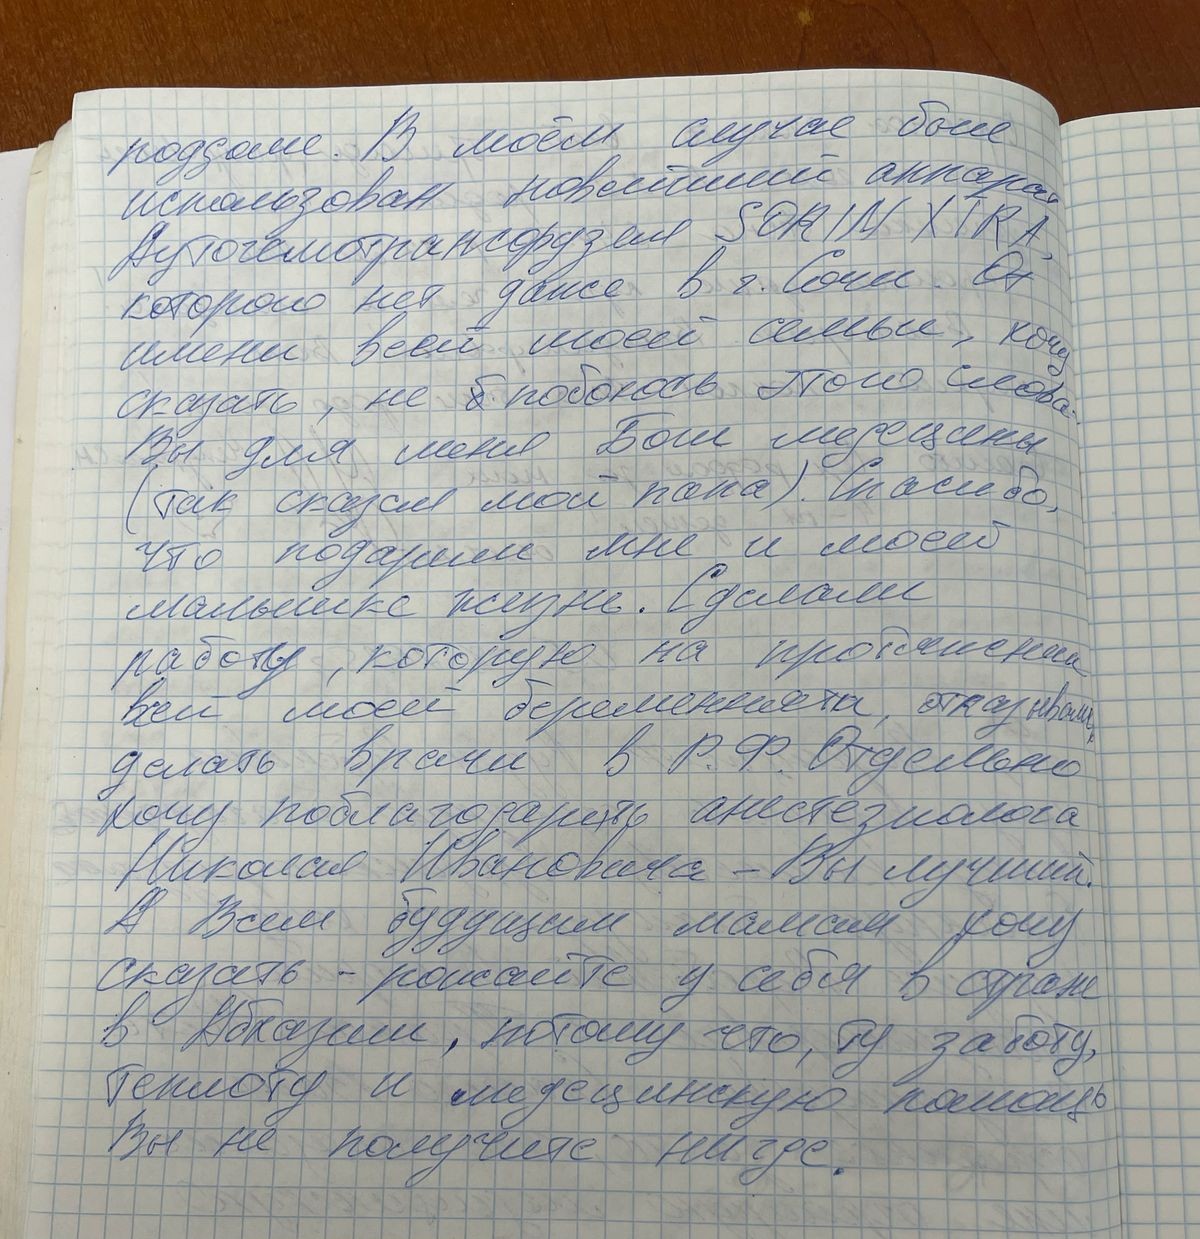 роддоме. В моём случае было
использован новейший аппарат
Аутогемотрансфузея SORIN XTRA,
которого нет даже в г. Сочи. От
имени всей моей семьи, хочу
сказать, не побоюсь этого слова.
Вы для меня Бог медецины
(так сказал мой папа). Спасибо,
что подарили мне и моей
малышке жизнь. Сделали
работу, которую на протяжении
всей моей беременности, отказывались
делать врачи в Р.Ф. Отдельно
хочу поблагодарить анестезиолога
Николая Ивановича – Вы лучший.
А Всем будущим мамам хочу
сказать – рожайте у себя в стране
в Абхазии, потому что, ту заботу,
теплоту и медецинскую помощь
Вы не получите нигде.